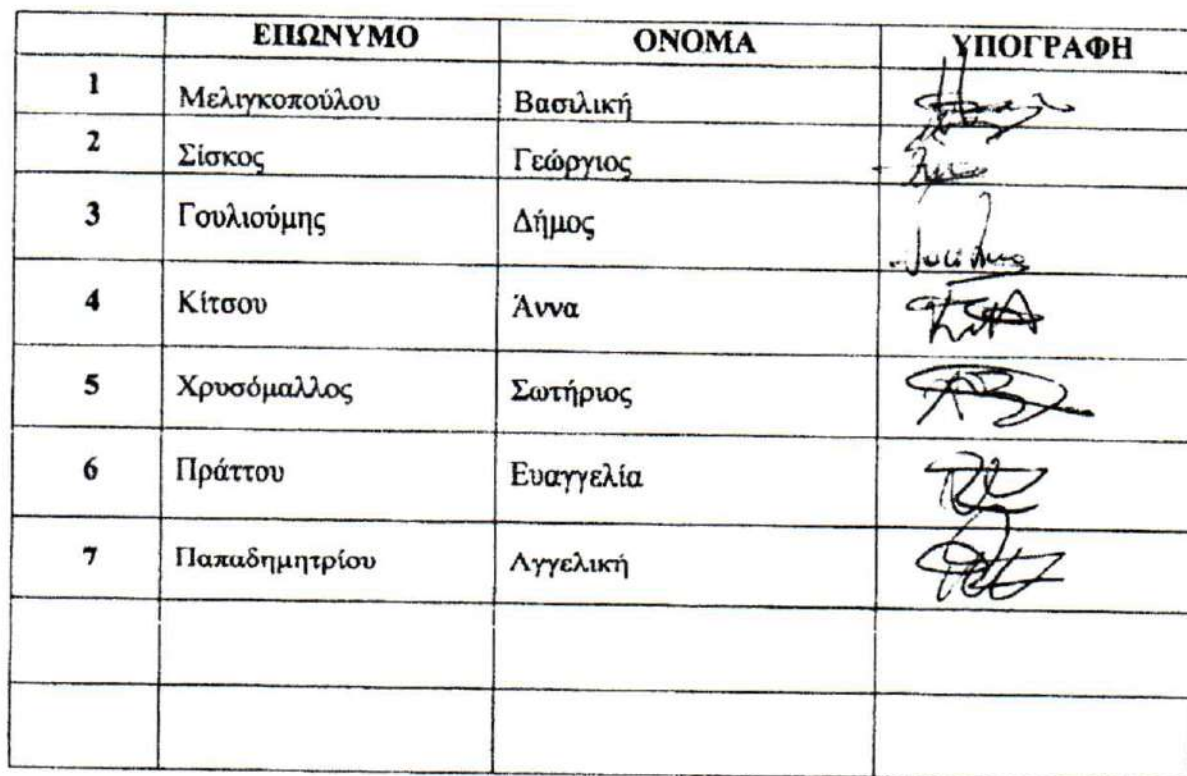 ΕΠΩΝΥΜΟ ΟΝΟΜΑ ΥΠΟΓΡΑΦΗ
1 Μελιγκοπούλου Βασιλική
2 Σίσκος Γεώργιος
3 Γουλιούμης Δήμος
4 Κίτσου Άννα
5 Χρυσόμαλλος Σωτήριος
6 Πράττου Ευαγγελία
7 Παπαδημητρίου Αγγελική